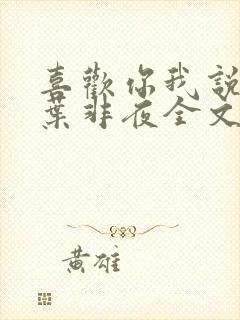 喜歡你我說
葉非夜全文
黃雄